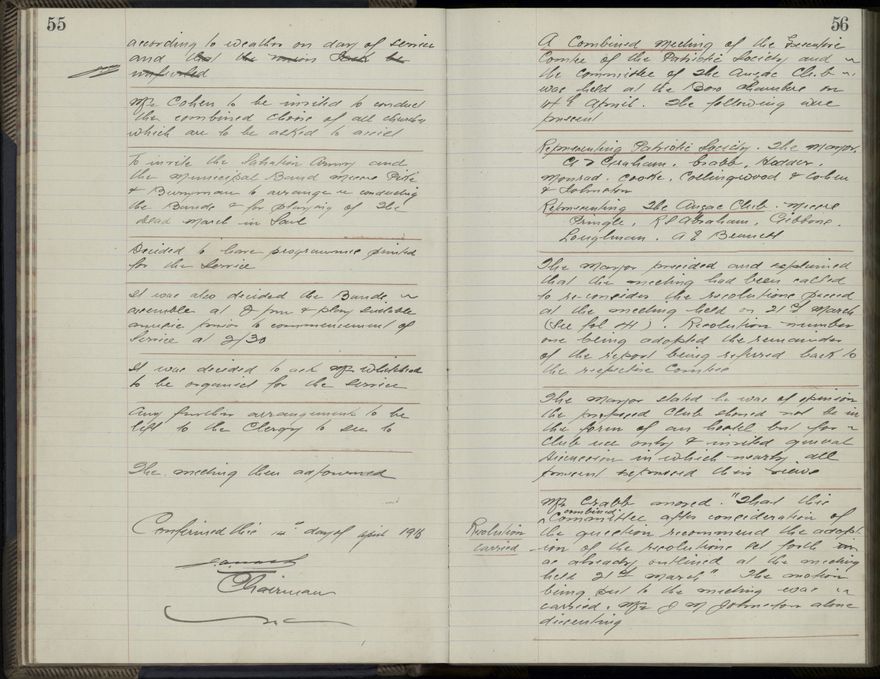 55
according to weather on day of service
and that the union Jack be
unfurled
Mr Cohen to be invited to conduct
the combined choirs of all churches
which are to be asked to assist
To invite the Salvation Army and
the Municipal Band
& Berryman to arrange re conducting
the Bands & for playing of the
Dead March in Saul
Decided to have programmes printed
for the Service
It was also decided the Bands
assemble at 2 pm & play suitable
music prior to commencement of
Service at 2/30
It was decided to ask Mr Whitehead
to be organist for the service
Any further arrangements to be
left to the Clergy to see to
The meeting then adjourned
Confirmed this day of April 1918
Chairman
56
A Combined meeting of the Executive
Comtee of the Patriotic Society and
the committee of The Anzac Club
was held at the Boro Chambers on
April. The following were
present
Representing Patriotic Society. The Mayor,
Graham, Crabb, Hodder,
Monrad, Cooke, Collingwood & Cohen
& Johnston
Representing The Anzac Club. Messrs
Pringle, R S Abraham, Gibbons,
Loughnan, A E Bennett
The Mayor presided and explained
that the meeting had been called
to re-consider the resolutions passed
at the meeting held on 21st March
(See fol 44). Resolution number
one being adopted the remainder
of the report being referred back to
the respective Comtee
The Mayor stated he was of opinion
the proposed Club should not be in
the form of an hostel but for
Club use only & invited general
discussion in which nearly all
present expressed their views
Mr Crabb moved. "That this
combined
Committee after consideration of
Resolution
the question recommend the adopt-
carried
ion of the resolutions set forth
as already outlined at the meeting
held 21st March" The motion
being put to the meeting was
carried, Mr J M Johnston alone
dissenting